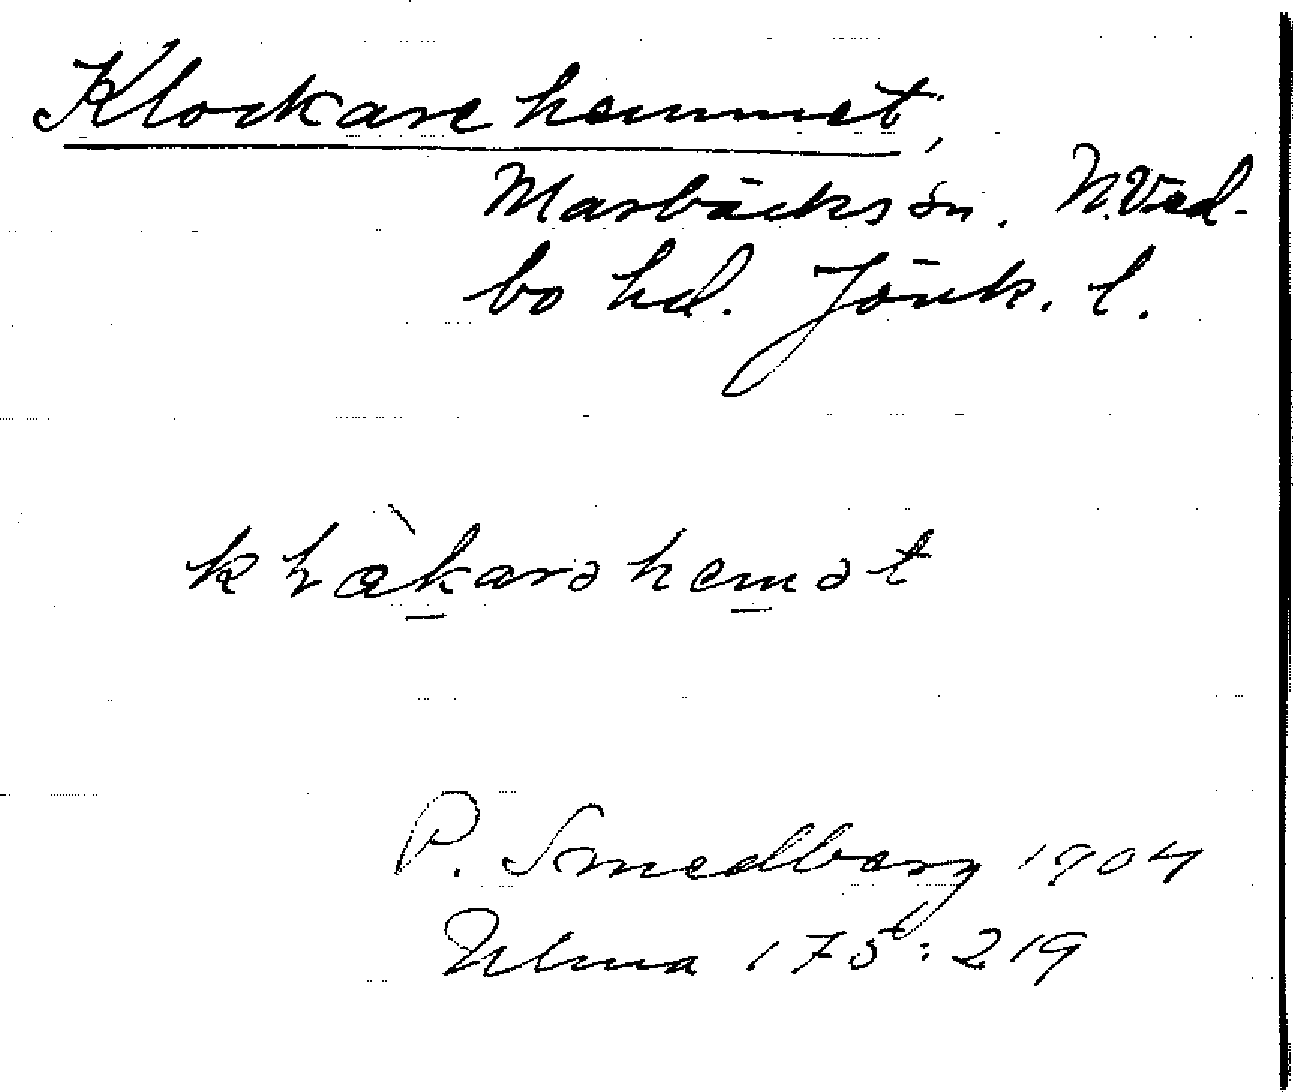 Klockarehemmet,
Marbäcks sn. N.Ved-
bo hd. Jönk. l.
klɑ̀karəhemət
P. Smedberg 1904
Ulma 175:219